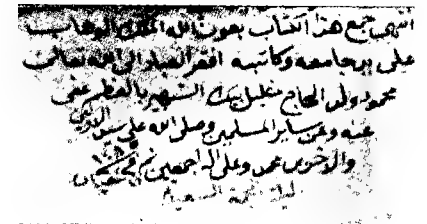 انتهى جمع هذا الكتاب بعون الله الملك الوهاب
على يد جامعه وكاتبه افقر العباد الى الله تعالى
محمود ولد الحاج خليل الشهير بالعظم عفى
عنه وعن ساير المسلمين وصلى الله على سيد الاولين
والاخرين محمد وعلى اله اجمعين تم
ليلة الجمعة